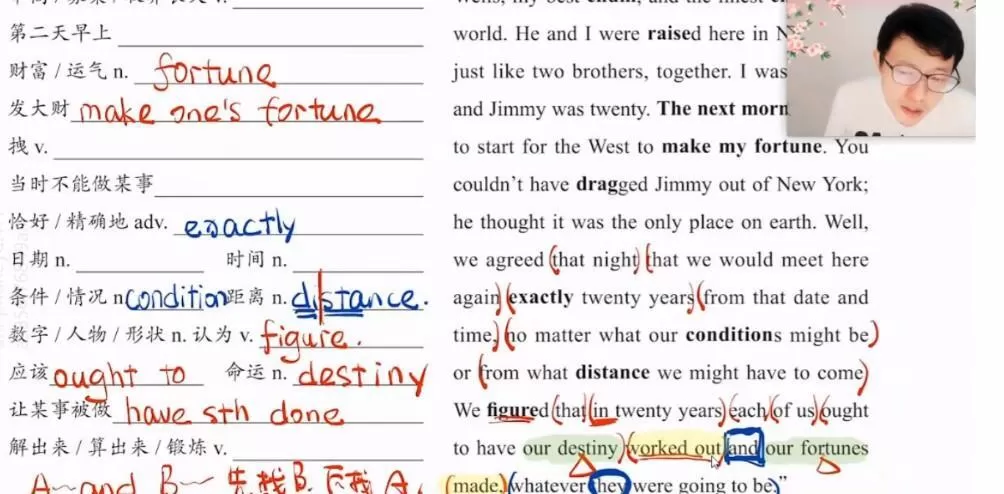 第二天早上
财富 / 运气 n. fortune
发大财 make one's fortune
拽 v.
当时不能做某事
恰好 / 精确地 adv. exactly
日期 n. 时间 n.
条件 / 情况 n condition 距离 n. distance.
数字 / 人物 / 形状 n. 认为 v. figure.
应该 ought to 命运 n. destiny
让某事被做 have sth done
解出来 / 算出来 / 锻炼 v.
A~and B~ 先找B.下找A.
world. He and I were raised here in N
just like two brothers, together. I was
and Jimmy was twenty. The next morn
to start for the West to make my fortune. You
couldn't have dragged Jimmy out of New York;
he thought it was the only place on earth. Well,
we agreed (that night) (that we would meet here
again) (exactly twenty years) (from that date and
time,) (no matter what our conditions might be)
or (from what distance we might have to come)
We figured (that (in twenty years) (each) (of us) (ought
to have our destiny) (worked out and our fortunes
(made,) (whatever they were going to be)"